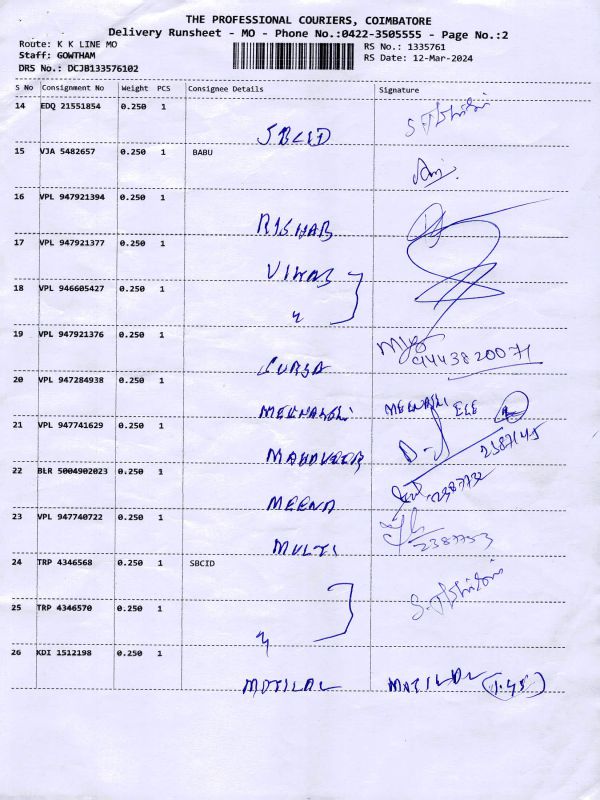 THE PROFESSIONAL COURIERS, COIMBATORE
Delivery Runsheet - MO - Phone No.:0422-3505555 - Page No.:2
Route: K K LINE MO
RS No.: 1335761
Staff: GOWTHAM
RS Date: 12-Mar-2024
DRS No.: DCJB133576102
S No Consignment No Weight PCS Consignee Details Signature
14 EDQ 21551854 0.250 1
SBCID
15 VJA 5482657 0.250 1 BABU
16 VPL 947921394 0.250 1
RISHAB
17 VPL 947921377 0.250 1
VIMAS
18 VPL 946605427 0.250 1
19 VPL 947921376 0.250 1
SURSA
9443820071
20 VPL 947284938 0.250 1
MEENAKSHI
21 VPL 947741629 0.250 1
MAHAVEER
2387145
22 BLR 5004902023 0.250 1
MEENA
2387732
23 VPL 947740722 0.250 1
MULTI
2387753
24 TRP 4346568 0.250 1 SBCID
25 TRP 4346570 0.250 1
26 KDI 1512198 0.250 1
MOTILAL MOTILAL (1.45)